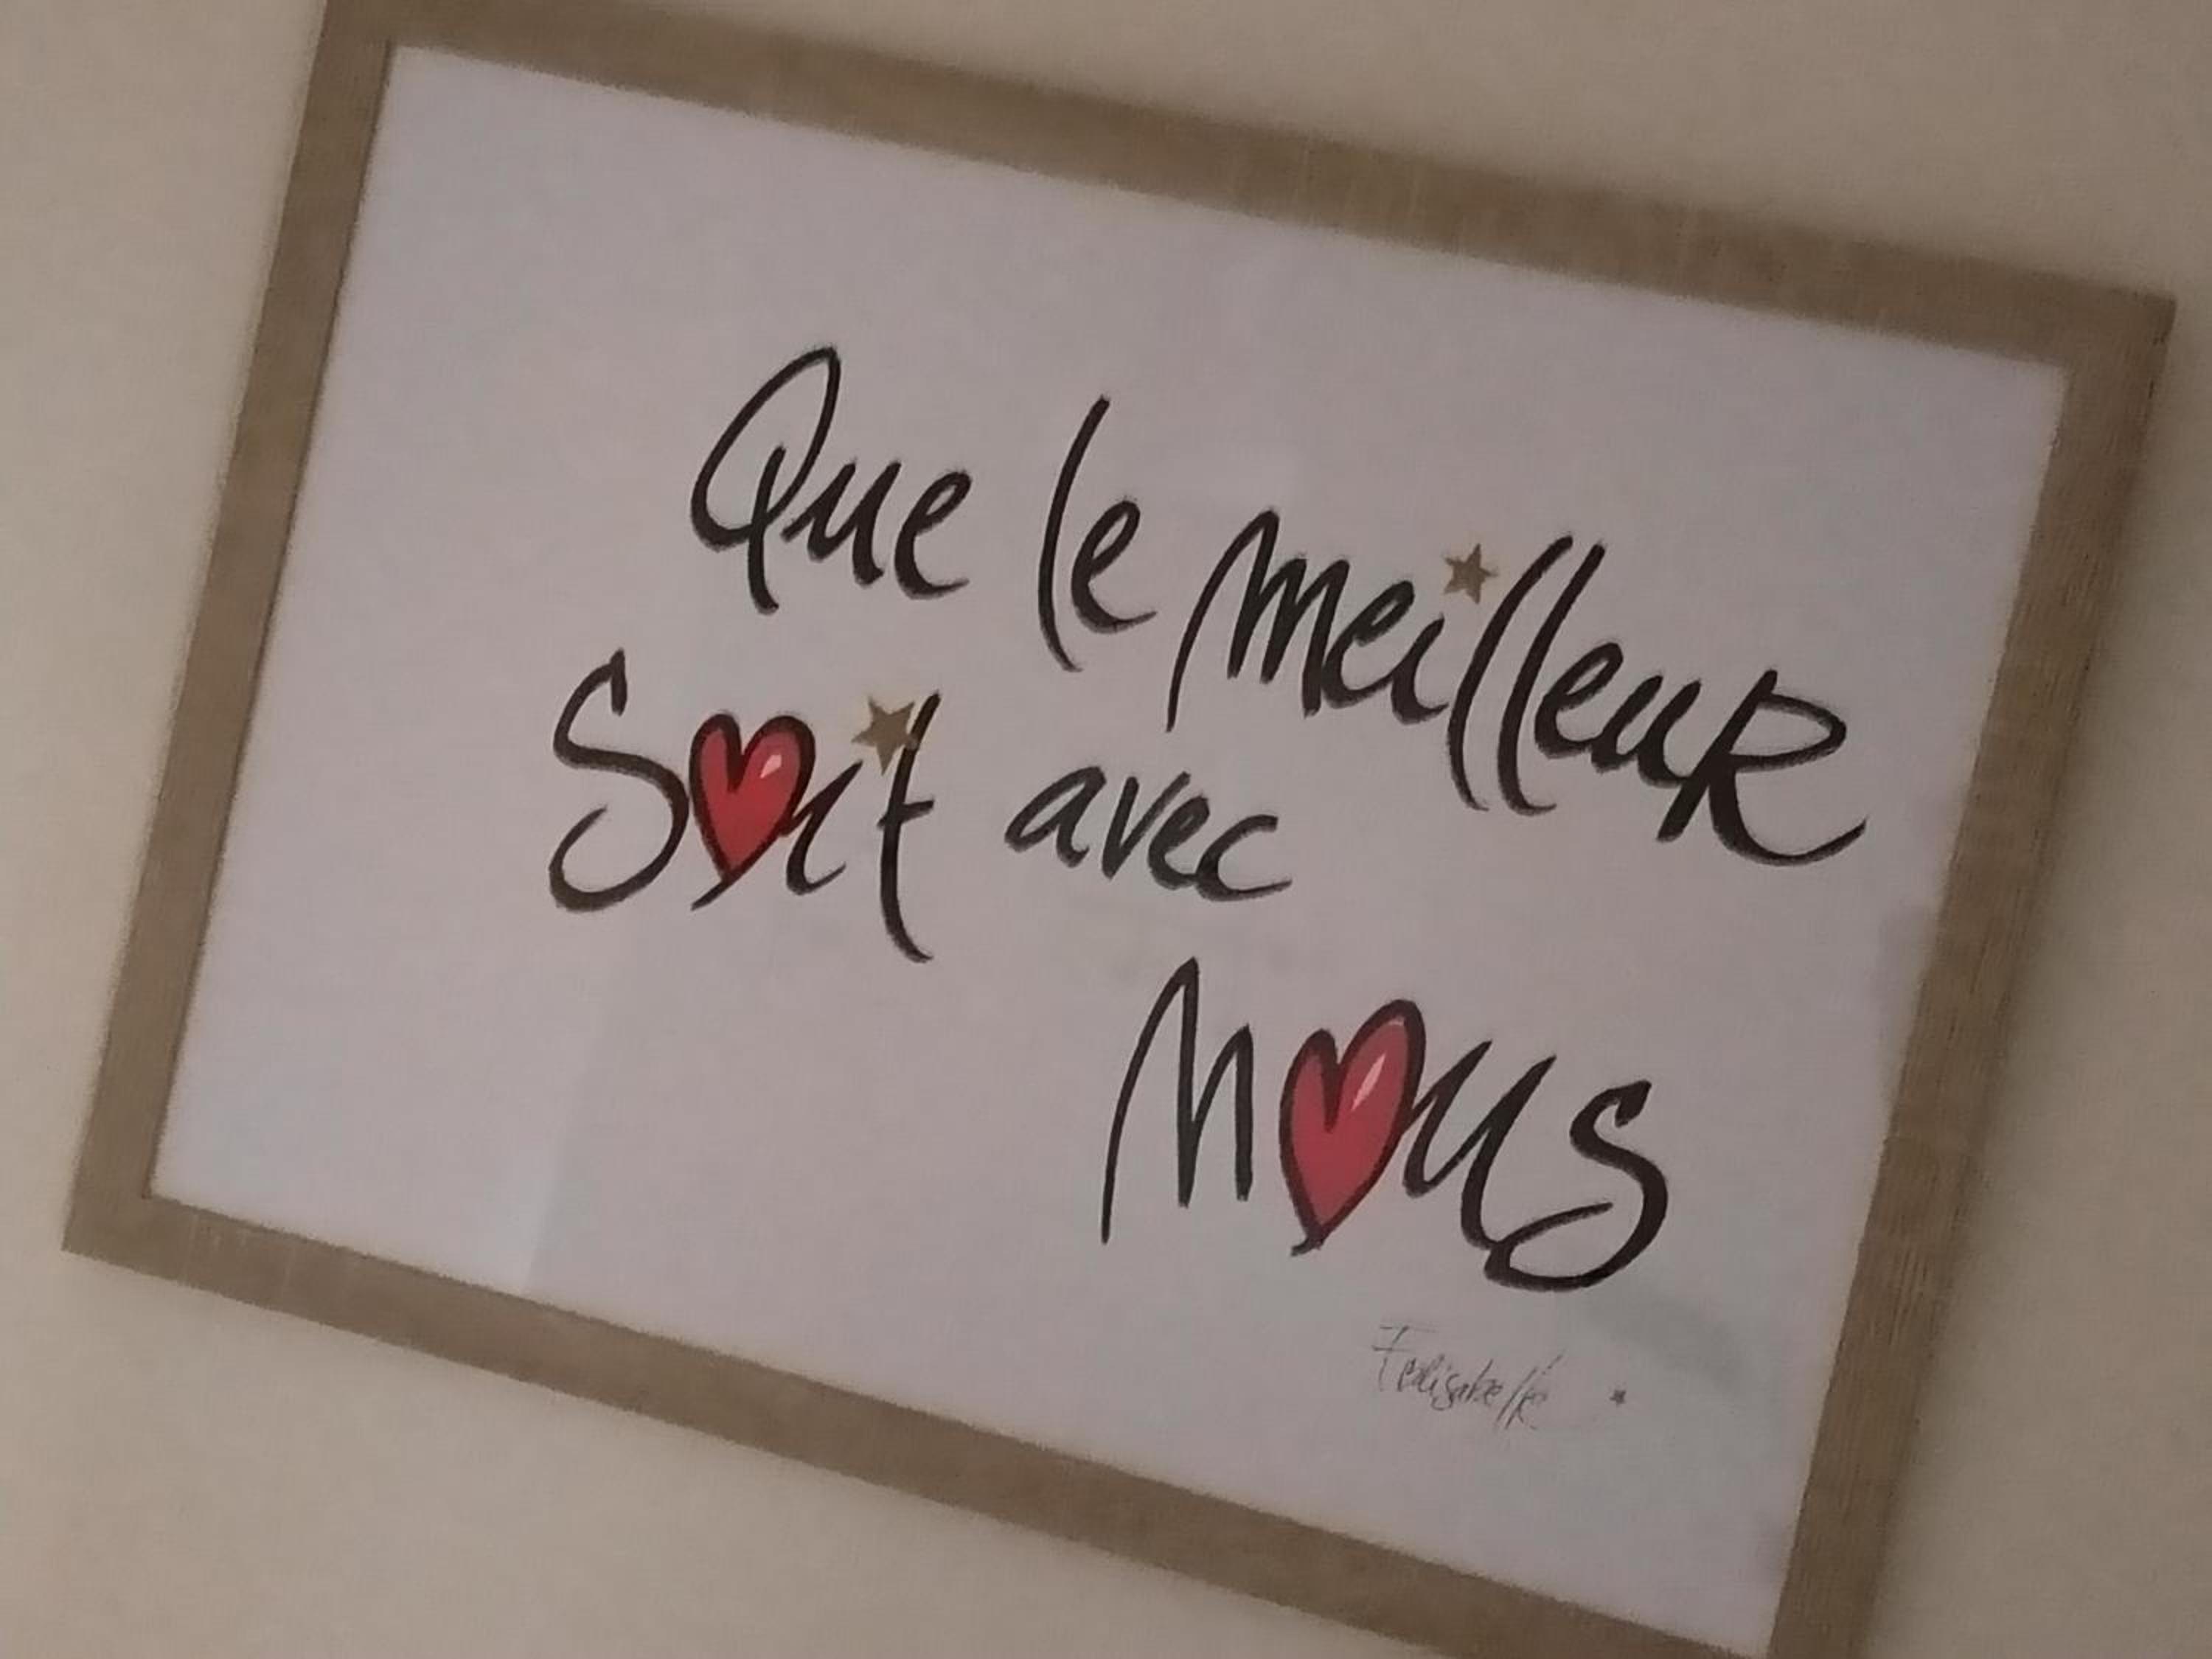 Que le meilleuR
Soit avec
Nous